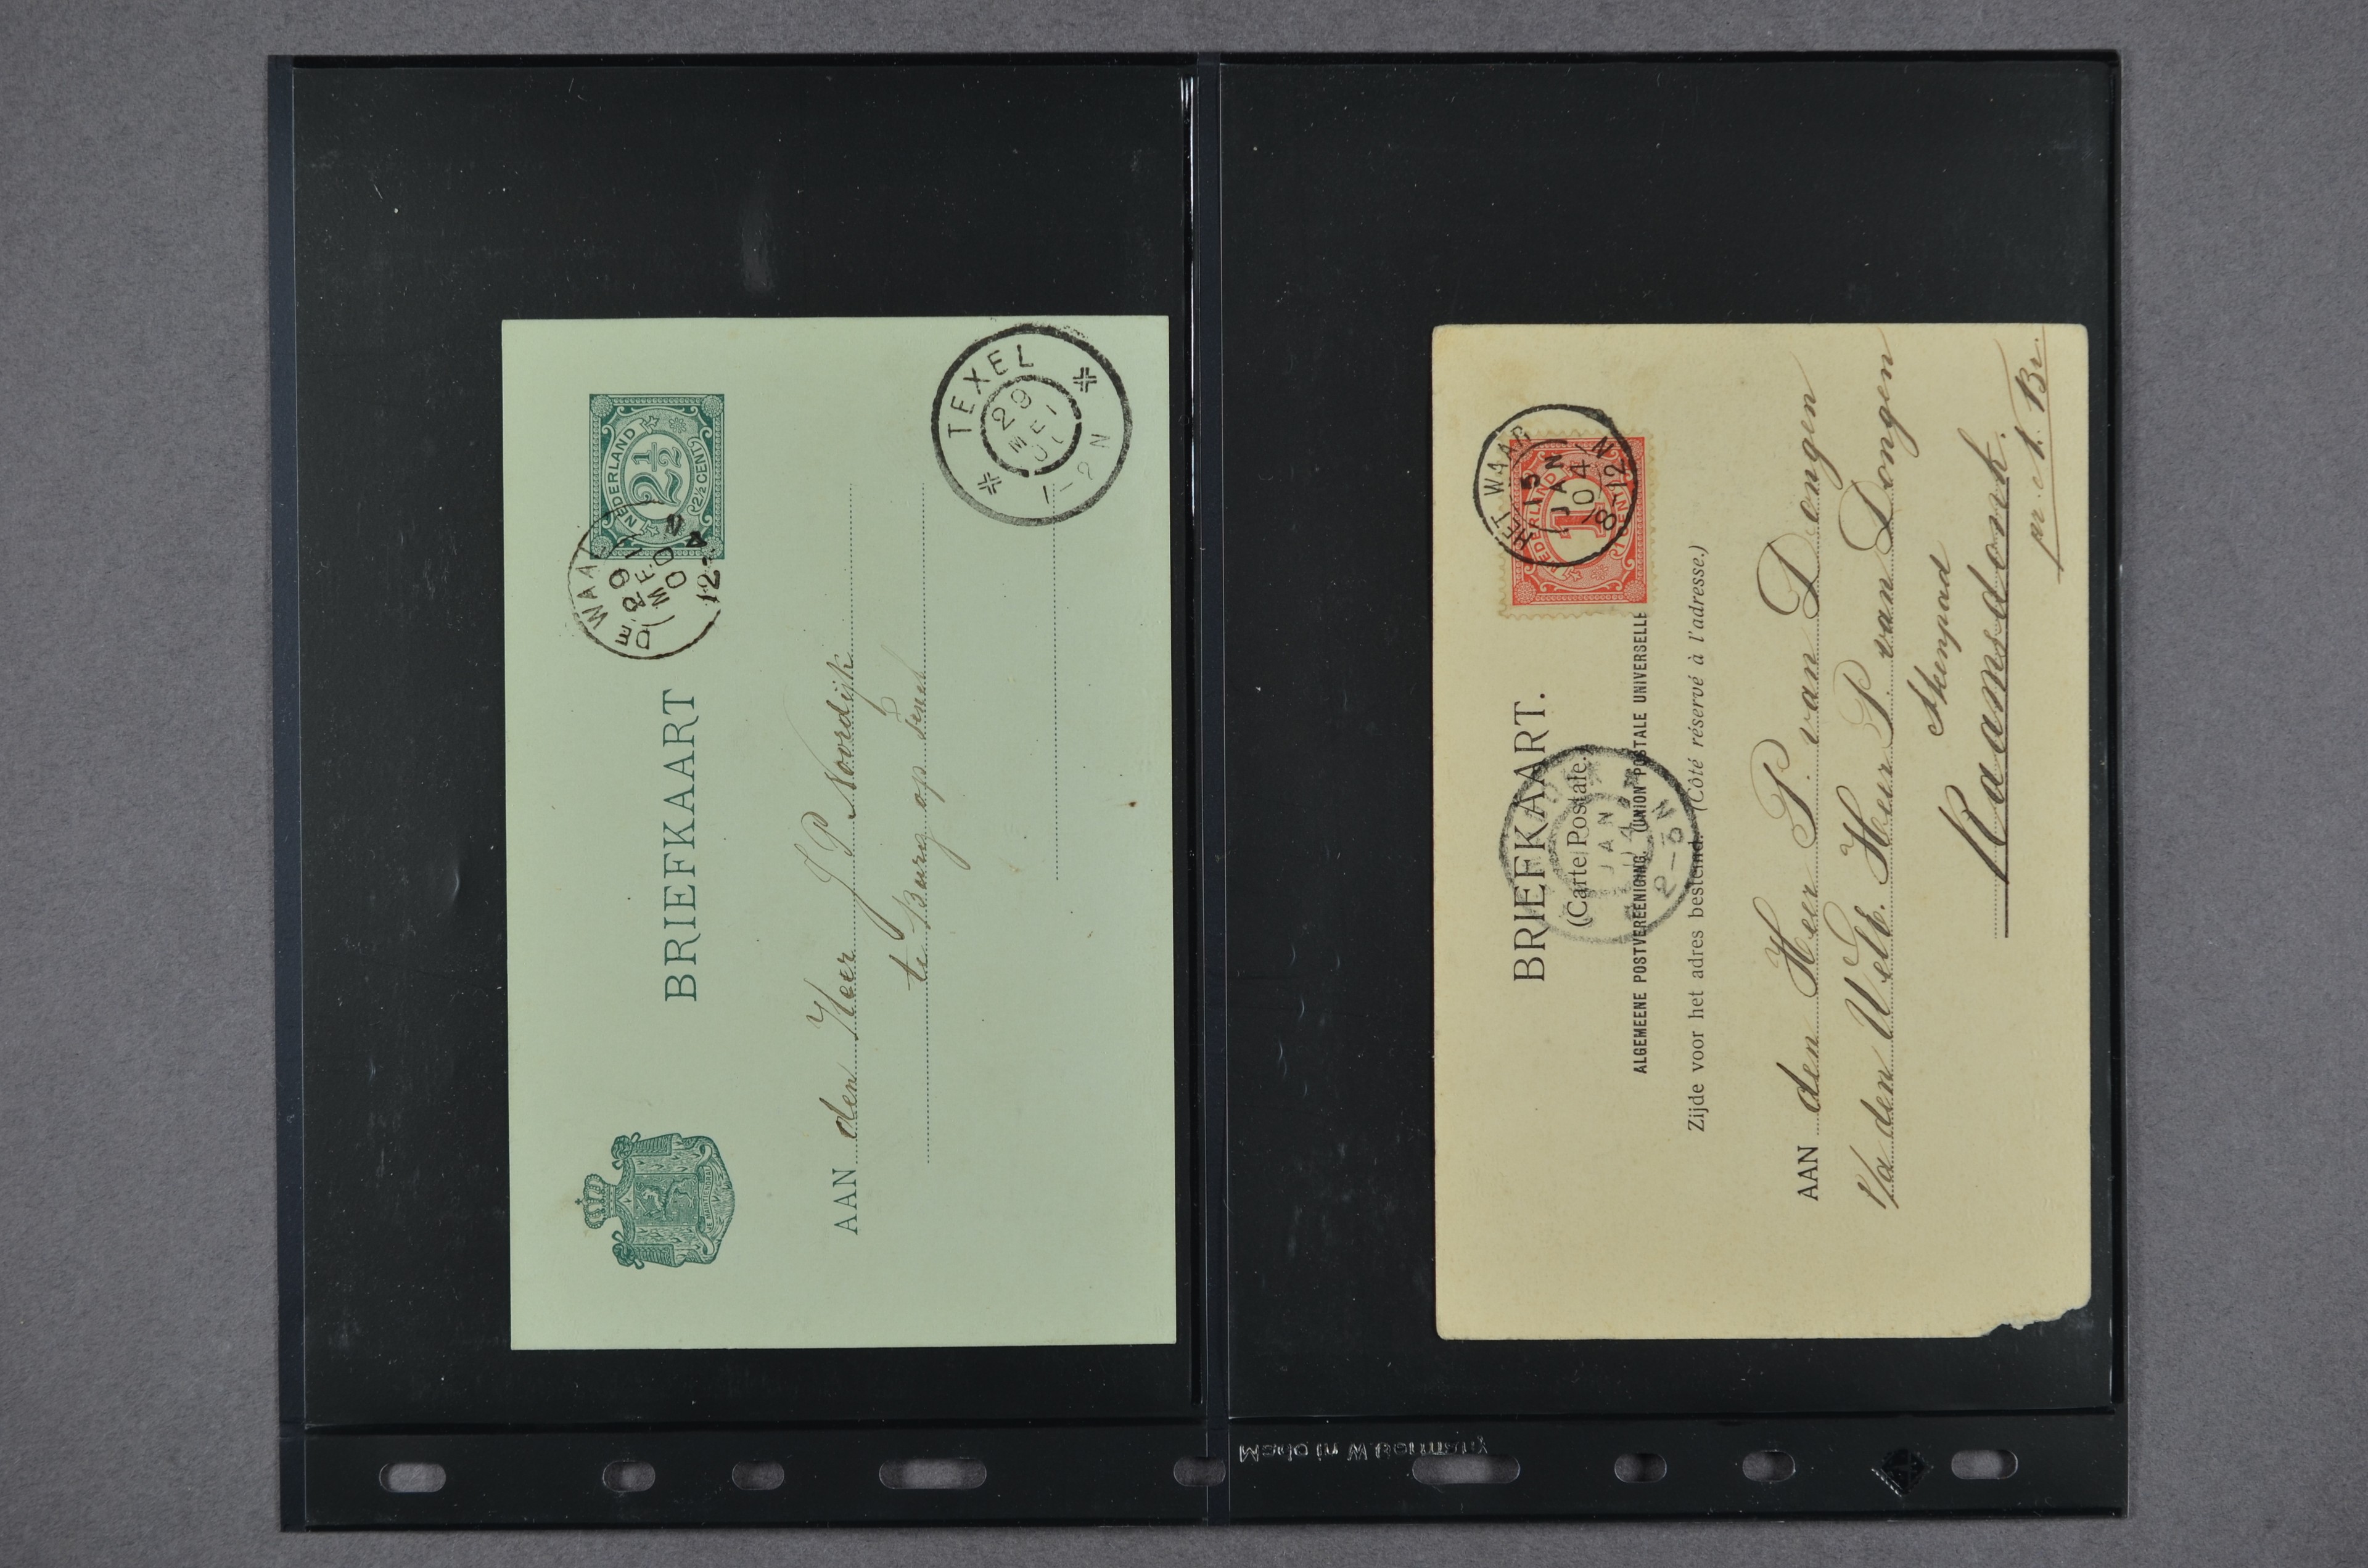 NEDERLAND
2½
(2½ CENT)
DE WAAL
29
MEI
00
12-4 N
BRIEFKAART
TEXEL
29
MEI
1-2 N
AAN den Heer J P Noordijk
te Burg op Texel
HET WAAR
15
JAN
04
8-12 N
NEDERLAND
1
CENT
BRIEFKAART.
(Carte Postale.)
ALGEMEENE POSTVEREENIGING. (UNION POSTALE UNIVERSELLE
Zijde voor het adres bestemd. (Côté réservé à l'adresse.)
JAN
04
2-5N
AAN den Heer P. van Dongen
p/a den WelE. Heer P. van Dongen
Raamsdonk.
Made in W.Germany